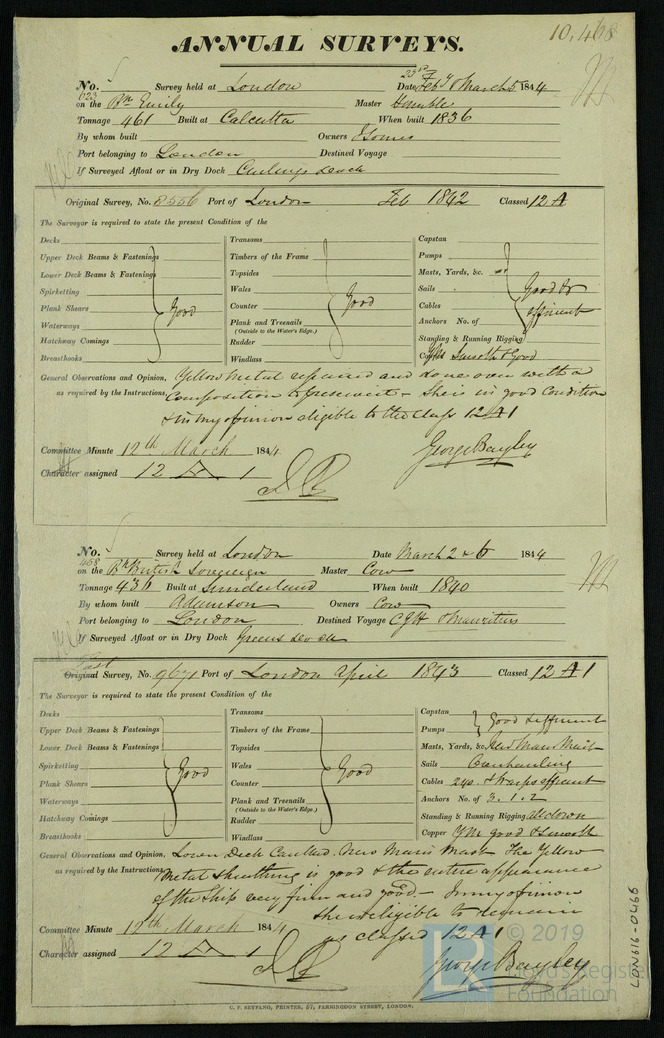 10,468
ANNUAL SURVEYS.
No. 423 Survey held at London Date 23rd Feby & March 5 1844
on the Bk Emily Master Humble
Tonnage 461 Built at Calcutta When built 1836
By whom built Owners J Somes
Port belonging to London Destined Voyage
If Surveyed Afloat or in Dry Dock Curlings Dock
Original Survey, No. 8556 Port of London Feb 1842 Classed 12 A
The Surveyor is required to state the present Condition of the
Decks
Upper Deck Beams & Fastenings
Lower Deck Beams & Fastenings
Spirketting
Plank Shears Good
Waterways
Hatchway Comings
Breasthooks
Transoms
Timbers of the Frame
Topsides
Wales
Counter Good
Plank and Treenails
(Outside to the Water's Edge.)
Rudder
Windlass
Capstan
Pumps
Masts, Yards, &c.
Sails Good &
Cables efficient
Anchors No. of
Standing & Running Rigging
Copper Smooth & Good
General Observations and Opinion, Yellow Metal repaired and done over with a
as required by the Instructions, Composition to preserve it - She is in good Condition
& in my opinion eligible to the class 12 A 1
Committee Minute 12th March 1844 George Bayley
Character assigned 12 A 1
No. 468 Survey held at London Date March 2 & 6 1844
on the Bk British Sovereign Master Cow
Tonnage 436 Built at Sunderland When built 1840
By whom built Adamson Owners Cow
Port belonging to London Destined Voyage CGH & Mauritius
If Surveyed Afloat or in Dry Dock Greens Dock
Last
Original Survey, No. 9671 Port of London April 1843 Classed 12 A 1
The Surveyor is required to state the present Condition of the
Decks
Upper Deck Beams & Fastenings
Lower Deck Beams & Fastenings
Spirketting Good
Plank Shears
Waterways
Hatchway Comings
Breasthooks
Transoms
Timbers of the Frame
Topsides
Wales Good
Counter
Plank and Treenails
(Outside to the Water's Edge.)
Rudder
Windlass
Capstan
Pumps Good & efficient
Masts, Yards, &c. New Main Mast
Sails Overhauling
Cables 240 & Warps efficient
Anchors No. of 3. 1. 2
Standing & Running Rigging all down
Copper YM good & smooth
General Observations and Opinion, Lower Deck Caulked. New Main Mast The Yellow
as required by the Instructions, Metal sheathing is good & the entire appearance
of the Ship very firm and good. - In my opinion
she is eligible to remain
as classed 12 A 1
Committee Minute 12th March 1844
Character assigned 12 A 1 George Bayley
C. F. SEYFANG, PRINTER, 57, FARRINGDON STREET, LONDON.
LON616-0466
© 2019
Lloyd's Register
Foundation